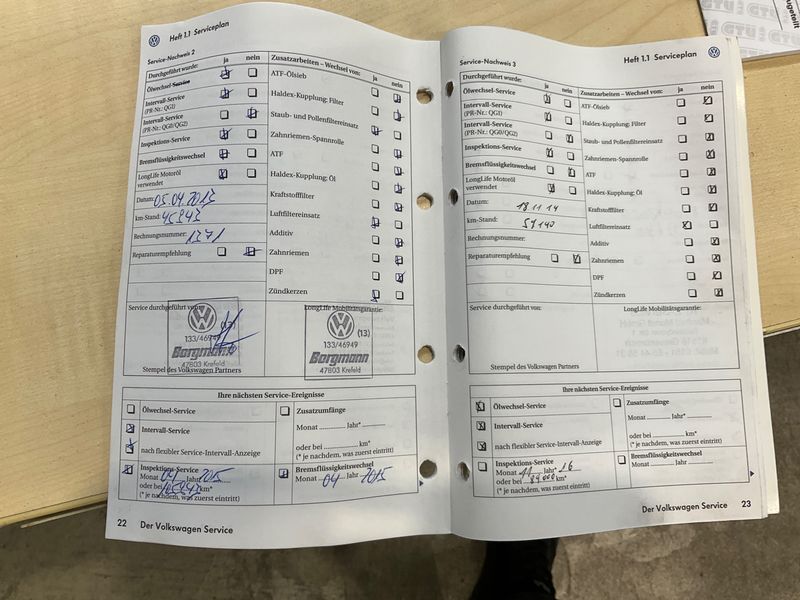 GTÜ
Heft 1.1 Serviceplan
Service-Nachweis 2
Durchgeführt wurde: ja nein
Ölwechsel-Service
Intervall-Service
(PR-Nr.: QG1)
Intervall-Service
(PR-Nr.: QG0/QG2)
Inspektions-Service
Bremsflüssigkeitswechsel
LongLife Motoröl
verwendet
Datum: 05.04.2013
km-Stand: 45943
Rechnungsnummer: 1371
Reparaturempfehlung
Zusatzarbeiten – Wechsel von: ja nein
ATF-Ölsieb
Haldex-Kupplung: Filter
Staub- und Pollenfiltereinsatz
Zahnriemen-Spannrolle
ATF
Haldex-Kupplung: Öl
Kraftstofffilter
Luftfiltereinsatz
Additiv
Zahnriemen
DPF
Zündkerzen
Service durchgeführt von:
133/46949
Borgmann
47803 Krefeld
Stempel des Volkswagen Partners
LongLife Mobilitätsgarantie:
(13)
133/46949
Borgmann
47803 Krefeld
Ihre nächsten Service-Ereignisse
Ölwechsel-Service
Intervall-Service
nach flexibler Service-Intervall-Anzeige
Inspektions-Service
Monat 04 Jahr 2015
oder bei km*
(* je nachdem, was zuerst eintritt)
Zusatzumfänge
Monat Jahr*
oder bei km*
(* je nachdem, was zuerst eintritt)
Bremsflüssigkeitswechsel
Monat 04 Jahr 2015
22 Der Volkswagen Service
Service-Nachweis 3
Heft 1.1 Serviceplan
Durchgeführt wurde: ja nein
Ölwechsel-Service
Intervall-Service
(PR-Nr.: QG1)
Intervall-Service
(PR-Nr.: QG0/QG2)
Inspektions-Service
Bremsflüssigkeitswechsel
LongLife Motoröl
verwendet
Datum: 18.11.14
km-Stand: 57140
Rechnungsnummer:
Reparaturempfehlung
Zusatzarbeiten – Wechsel von: ja nein
ATF-Ölsieb
Haldex-Kupplung: Filter
Staub- und Pollenfiltereinsatz
Zahnriemen-Spannrolle
ATF
Haldex-Kupplung: Öl
Kraftstofffilter
Luftfiltereinsatz
Additiv
Zahnriemen
DPF
Zündkerzen
Service durchgeführt von:
Stempel des Volkswagen Partners
LongLife Mobilitätsgarantie:
Ihre nächsten Service-Ereignisse
Ölwechsel-Service
Intervall-Service
nach flexibler Service-Intervall-Anzeige
Inspektions-Service
Monat 11 Jahr* 16
oder bei 84000 km*
(* je nachdem, was zuerst eintritt)
Zusatzumfänge
Monat Jahr*
oder bei km*
(* je nachdem, was zuerst eintritt)
Bremsflüssigkeitswechsel
Monat Jahr
Der Volkswagen Service 23